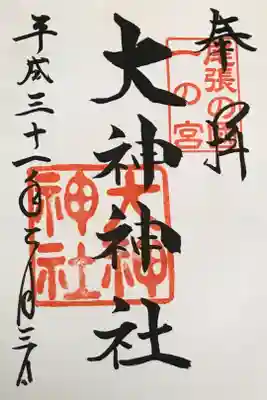 奉拝
尾張の国
一の宮
大神神社
大神
神社
平成三十一年三月三日